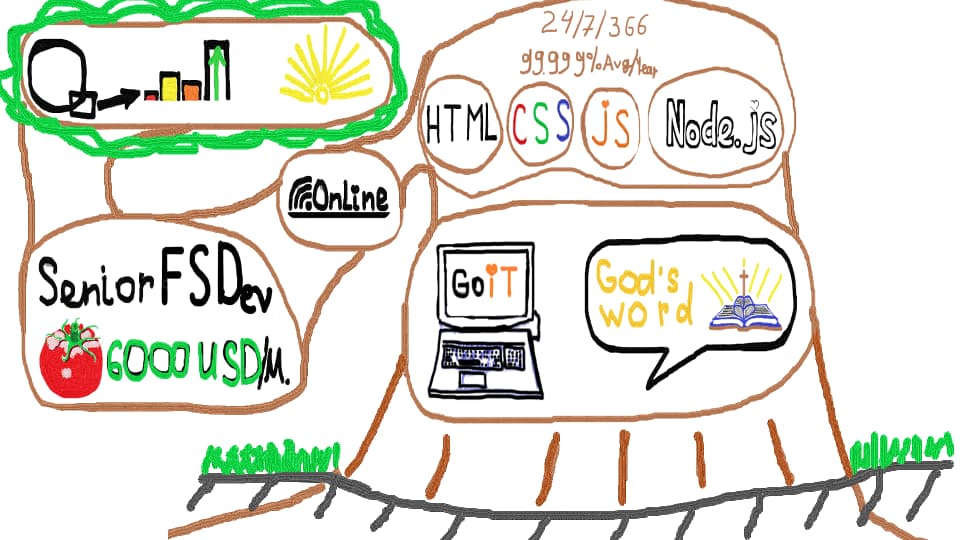 24/7/366
99.999%Avg/Year
HTML
CSS
js
Node.js
OnLine
Senior FSDev
6000 USD/M.
GoiT
God's
word